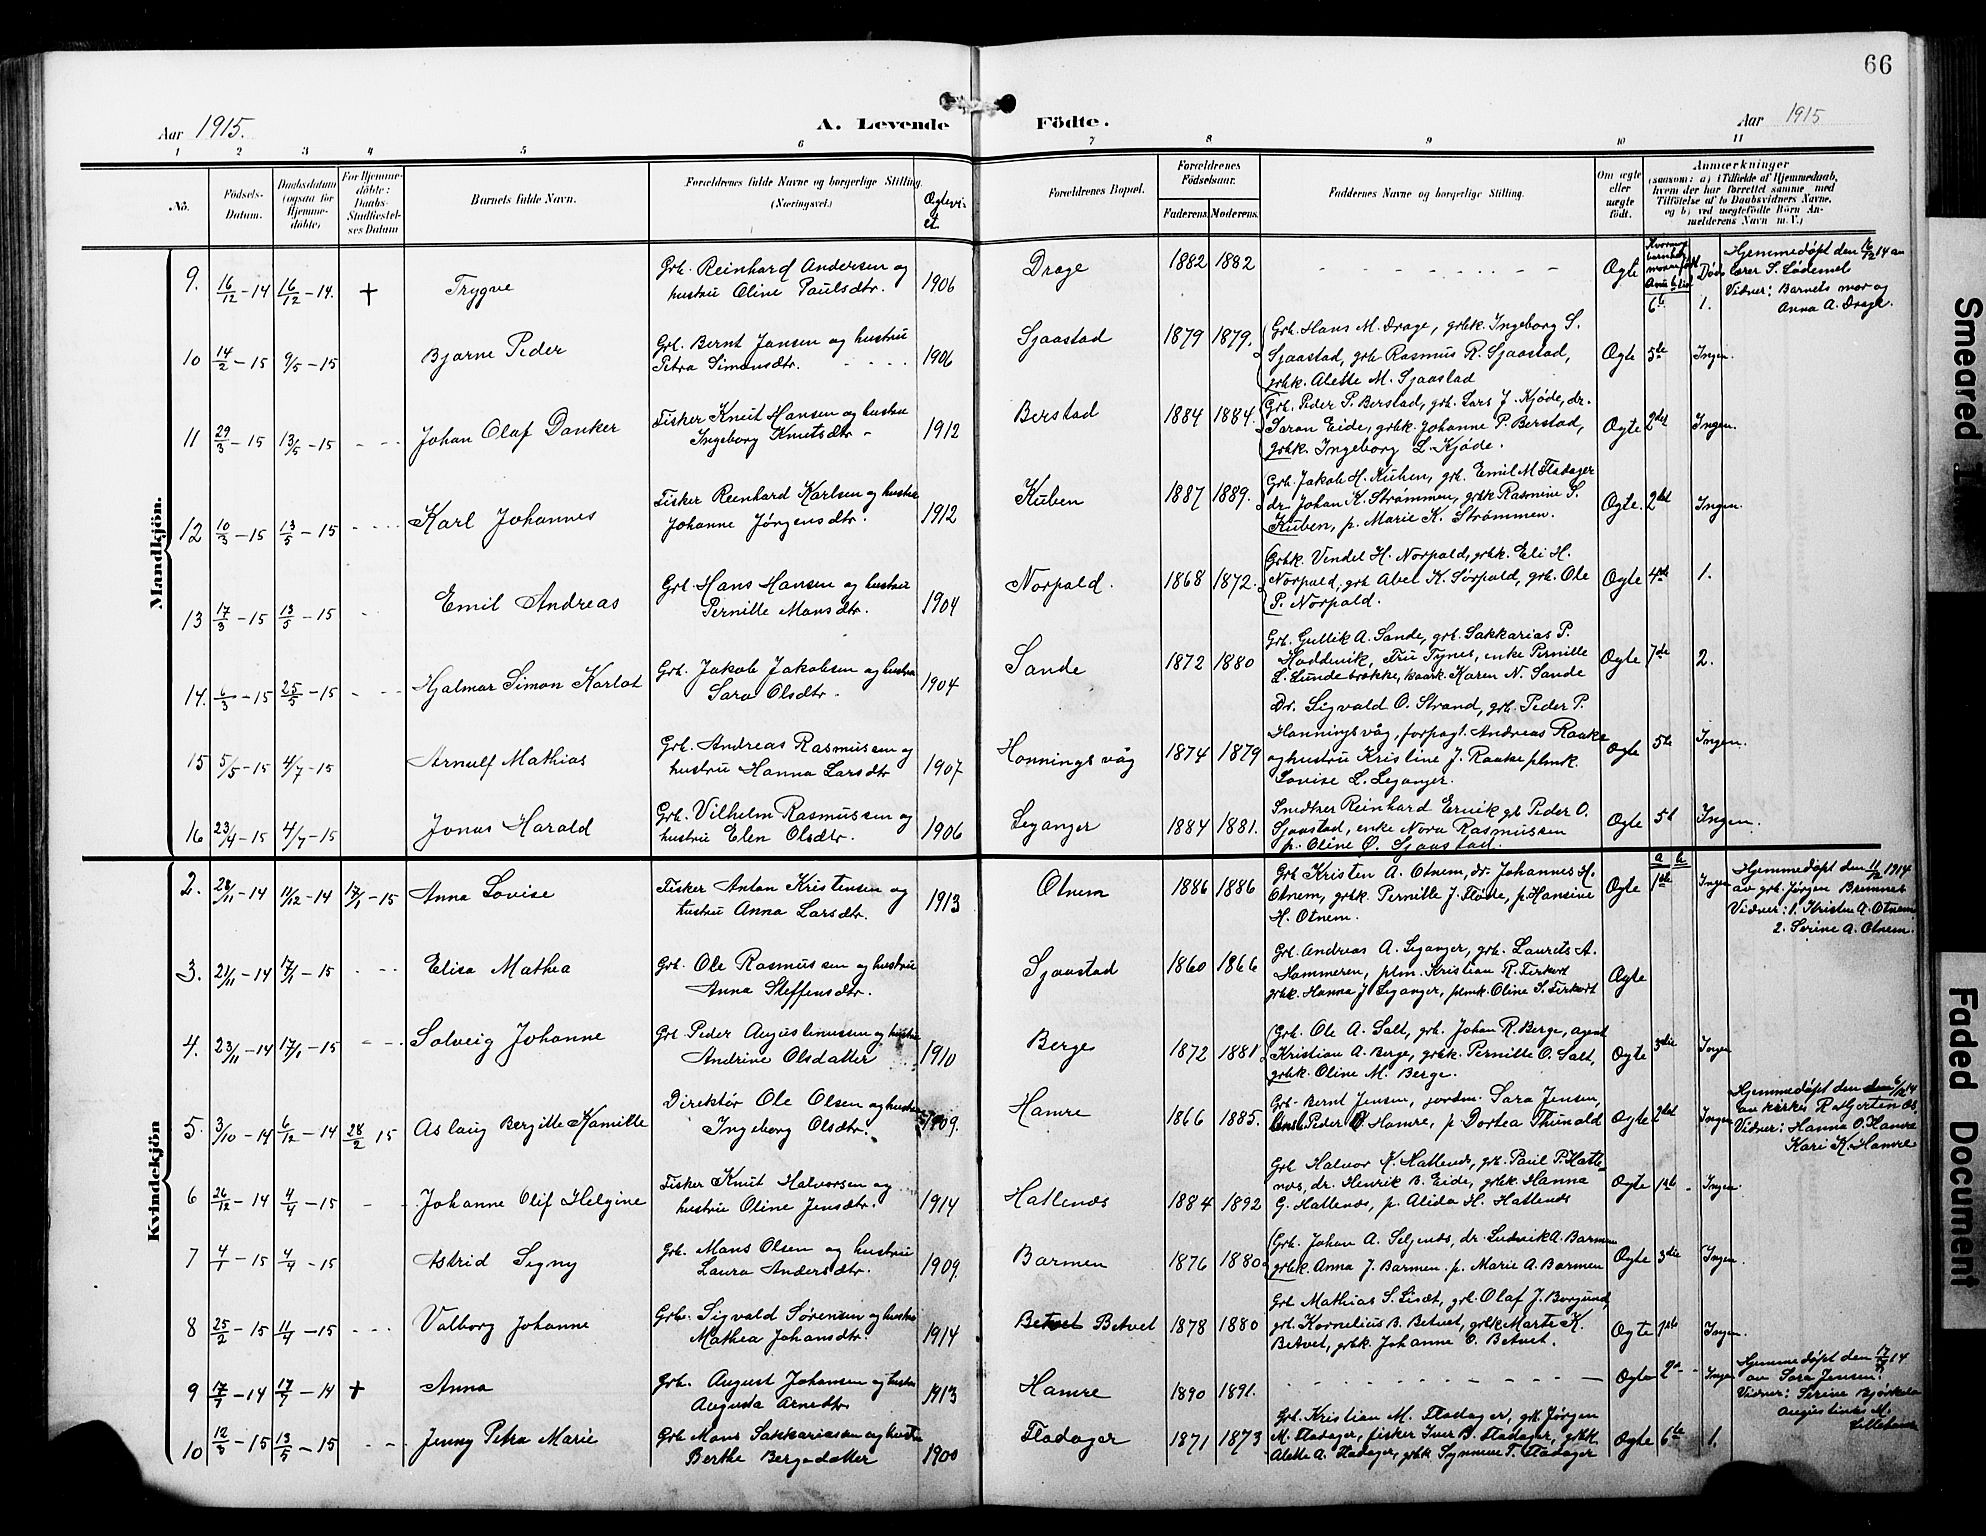 66
Aar 1915.
A. Levende Födte.
Aar 1915
1 2 3 4 5 6 7 8 9 10 11
No.
Födsels-Datum.
Daabsdatum (ogsaa for Hjemme-döbte)
For Hjemme-döbte: Daabs-Stadfæstel-ses Datum
Barnets fulde Navn.
Forældrenes fulde Navne og borgerlige Stilling. (Næringsvei.)
Ogtevi-et.
Forældrenes Bopæl.
Forældrenes Födselsaar.
Faderens. Moderens.
Faddernes Navne og borgerlige Stilling.
Om ægte eller uægte födt.
Anmærkninger
(saasom: a) i Tilfælde af Hjemmedaab,
hvem der har forrettet samme, med
Tilföielse af to Daabsvidners Navne,
og b) ved uægtefödte Börn An-
melderens Navn m. V.)
Mandkjön.
9. 16/12-14 16/12-14. + Trygve
Grb. Reinhard Andersen og
hustru Oline Paulsdtr. 1906
Drage 1882 1882 - - - - - - - Ogte 6te Døds 1.
Hjemmedøpt den 16/12 14 av
lærer S. Lødemel
Vidner: Barnets mor og
Anna A. Drage.
10 14/2-15 9/5-15 Bjarne Peder
Grb. Bernt Jansen og hustru
Petra Simonsdtr. 1906
Sjaastad 1879 1879.
Grb. Hans M. Drage, grbk. Ingeborg S.
Sjaastad, grb Rasmus R. Sjaastad,
grbk. Alette M. Sjaastad
Ogte 5te Ingen.
11 29/3-15 13/5-15 - - - Johan Olaf Danker
Fisker Knut Hansen og hustru
Ingeborg Knutsdtr - 1912
Berstad 1884 1884.
Grb. Peder P. Berstad, grb. Lars J. Kjøde, dr.
Søran Eide, grbk. Johanne P. Berstad,
grbk. Ingeborg L. Kjøde.
Ogte 2det Ingen.
12 10/3-15 13/5-15 - - - Karl Johannes
Fisker Reinhard Karlsen og hustru
Johanne Jørgensdtr. 1912
Kuben 1887 1889.
Grb. Jakob H. Kuben, grb. Emil M Fladager
dr. Johan K. Strømmen, grbk Rasmine S.
Kuben, p. Marie K. Strømmen.
Ogte. 2det Ingen.
13 17/3-15 13/5-15 - Emil Andreas
Grb. Hans Hansen og hustru
Pernille Monsdtr. 1904
Norpald. 1868 1872.
Grbk. Vendel H. Norpald, grbk. Eli H.
Norpald, grb Abel K. Sørpald, grb. Ole
P. Norpald.
Ogte 4de 1.
14. 6/3-15 25/5-15 - - - Hjalmar Simon Karlot
Grb. Jakob Jakobsen og hustru
Sara Olsdtr. 1904
Sande 1872 1880
Grb. Gullik A. Sande, grb. Sakkarias P.
Hoddevik, Fru Tynes, enke Pernille
L. Lundebrække, kaark. Karen N. Sande
Ogte 7de 2.
15 5/5-15 4/7-15 Arnulf Mathias
Grb. Andreas Rasmussen og
hustru Hanna Larsdtr 1907
Honningsvåg 1874 1879
Dr. Sigvald O. Strand, grb. Peder P.
Honningsvåg, forpagt. Andreas Raake
og hustru Kristine J. Raake plmk.
Lovise L. Leganger.
Ogte 5te Ingen.
16 23/4-15 4/7-15 Jonas Harald
Grb. Vilhelm Rasmussen og
hustru Elen Olsdtr. 1906
Leganger 1884 1881.
Snedker Reinhard Ervik gb Peder O.
Sjaastad, enke Nora Rasmussen
p. Oline O. Sjaastad.
Ogte 5t Ingen.
Kvindekjön
a b
2. 28/11-14 11/12-14 17/1-15 Anna Lovise
Fisker Anton Kristensen og
hustru Anna Larsdtr. 1913
Otnem 1886 1886
Grb Kristen A. Otnem, dr. Johannes H.
Otnem, grbk. Pernille J. Fløde, p. Hansine
H. Otnem.
Ogte 1ste Ingen
Hjemmedøpt den 11/12 1914
av grb. Jørgen Bremnes
Vidner: 1. Kristen A. Otnem
2. Serine A. Otnem.
3. 21/11-14 17/1-15 - - - Elisa Mathea
Grb. Ole Rasmussen og hustru
Anna Steffensdtr.
Sjaastad 1860 1866
Grb. Andreas A. Leganger, grb. Laurets A.
Hammeren, plm. Kristian R. Firkort
grbk. Hanna J Leganger, plmk. Oline S. Firkort
Ogte
4. 23/11-14 17/1-15 - - - Solveig Johanne
Grb. Peder Augustinussen og hustru
Andrine Olsdatter 1910
Berge 1872 1881
Grb. Ole A. Salt, grb. Johan R. Berge, agent
Kristian A. Berge, grbk. Pernille O. Salt,
grbk. Oline M. Berge.
Ogte 3die Ingen
5. 3/10-14 6/12-14 28/2 15 Aslaug Bergitte Kamille
Direktør Ole Olsen og hustru
Ingeborg Olsdtr. 1909.
Hamre 1866 1885.
Grb. Bernt Jensen, jordm. Sara Jensen,
Peder O. Hamre, p Dortea Thunold
Ogte 2det Ingen
Hjemmedøpt den 6/12 14
Vidner: Hanna O. Hamre
Kari K. Hamre
6 26/12-14 4/4-15 - - Johanne Olif Helgine
Fisker Knut Halvorsen og
hustru Oline Jensdtr. 1914
Hatlenes 1884 1892
Grb Halvor N. Hatlenes, grb. Paul P. Hatle-
nes, dr. Henrik B. Eide, grbk Hanna
G. Hatlenes, p. Alida H. Hatlenes
Ogte 1ste - Ingen.
7 4/1-15 4/4-15 Astrid Signy
Grb. Mons Olsen og hustru
Laura Andersdtr. 1909.
Barmen 1876 1880
Grb. Johan A. Seljenes, dr. Ludvik A. Barmen
grbk. Anna J. Barmen. p. Marie A. Barmen
Ogte 3die Ingen.
8 25/2-15 11/4-15 - - - Valborg Johanne
Grb. Sigvald Sørensen og hustru
Mathea Johansdtr. 1914
Betvet 1878 1880
Grb Mathias S. Liset, grb. Olaf J. Borgund,
grb Kornelius B. Betvet, grbk Marte K.
Betvet, grbk. Johanne O. Betvet.
Ogte 1ste Ingen.
9 17/7-14 17/7-14 + Anna
Grb. August Johansen og hustru
Augusta Arnedtr 1913
Hamre 1890 1891. - - - - - - - Ogte Ingen
Hjemmedøpt den 17/7 14
av Sara Jensen.
Vidner: Serine Bjørkelo
Augustinus M.
Lillebø
10 12/3-15 13/5-15 - - Jenny Petra Marie
Grb Mons Sakkariassen og hustru
Berthe Bergedatter 1900
Fladager 1871 1873
Grb. Kristian M. Fladager, grb. Jørgen
M. Fladager, fisker Iver B. Fladager, grbk
Alette A. Fladager, grbk Synneve T. Fladager
Ogte 6te 1.
Smeared
Faded Document